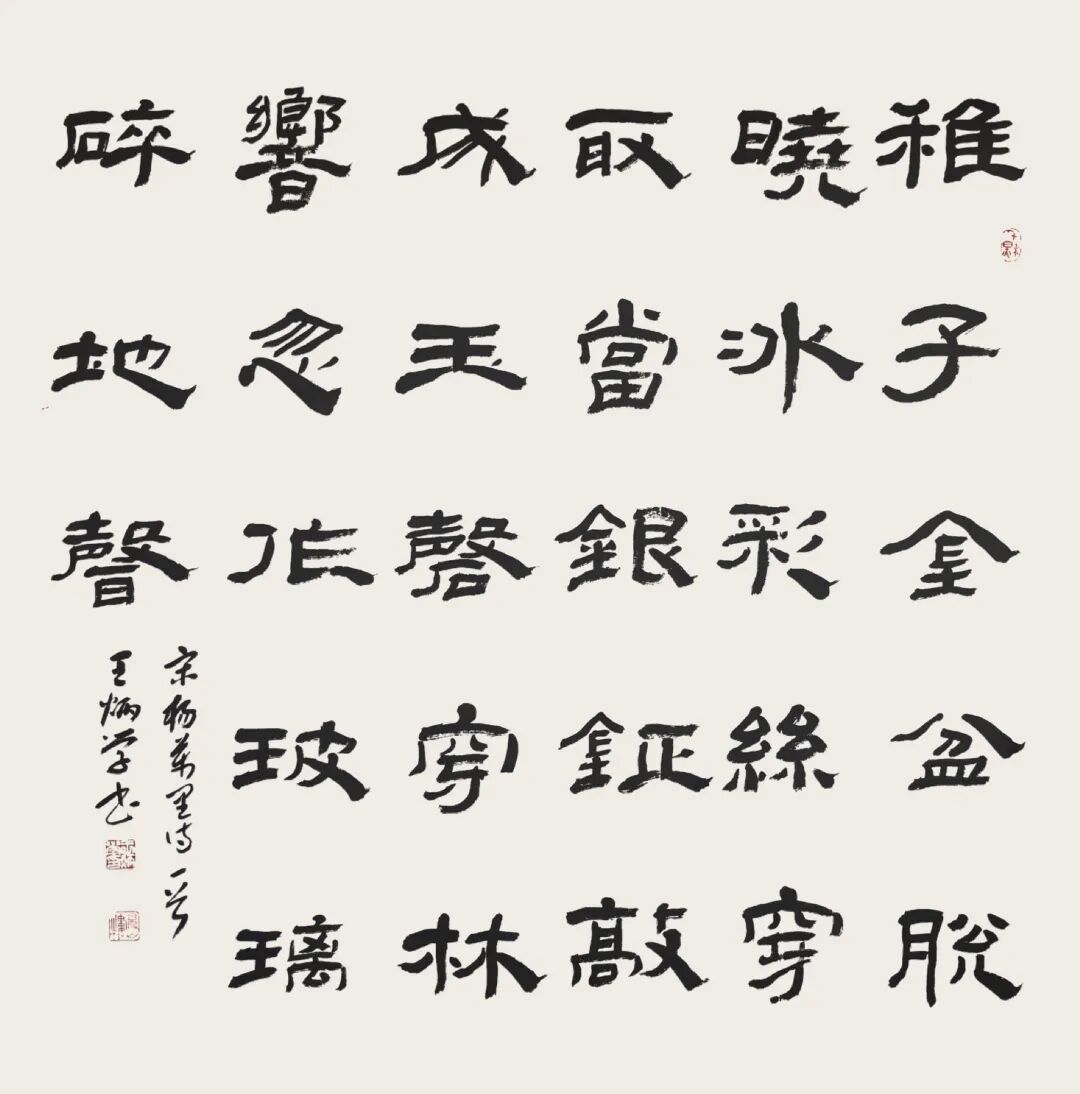 稚子金盆脱
曉冰彩絲穿
取當銀鉦敲
成玉磬穿林
響忽作玻璃
碎地聲
宋杨萬里诗一首
王炳学书